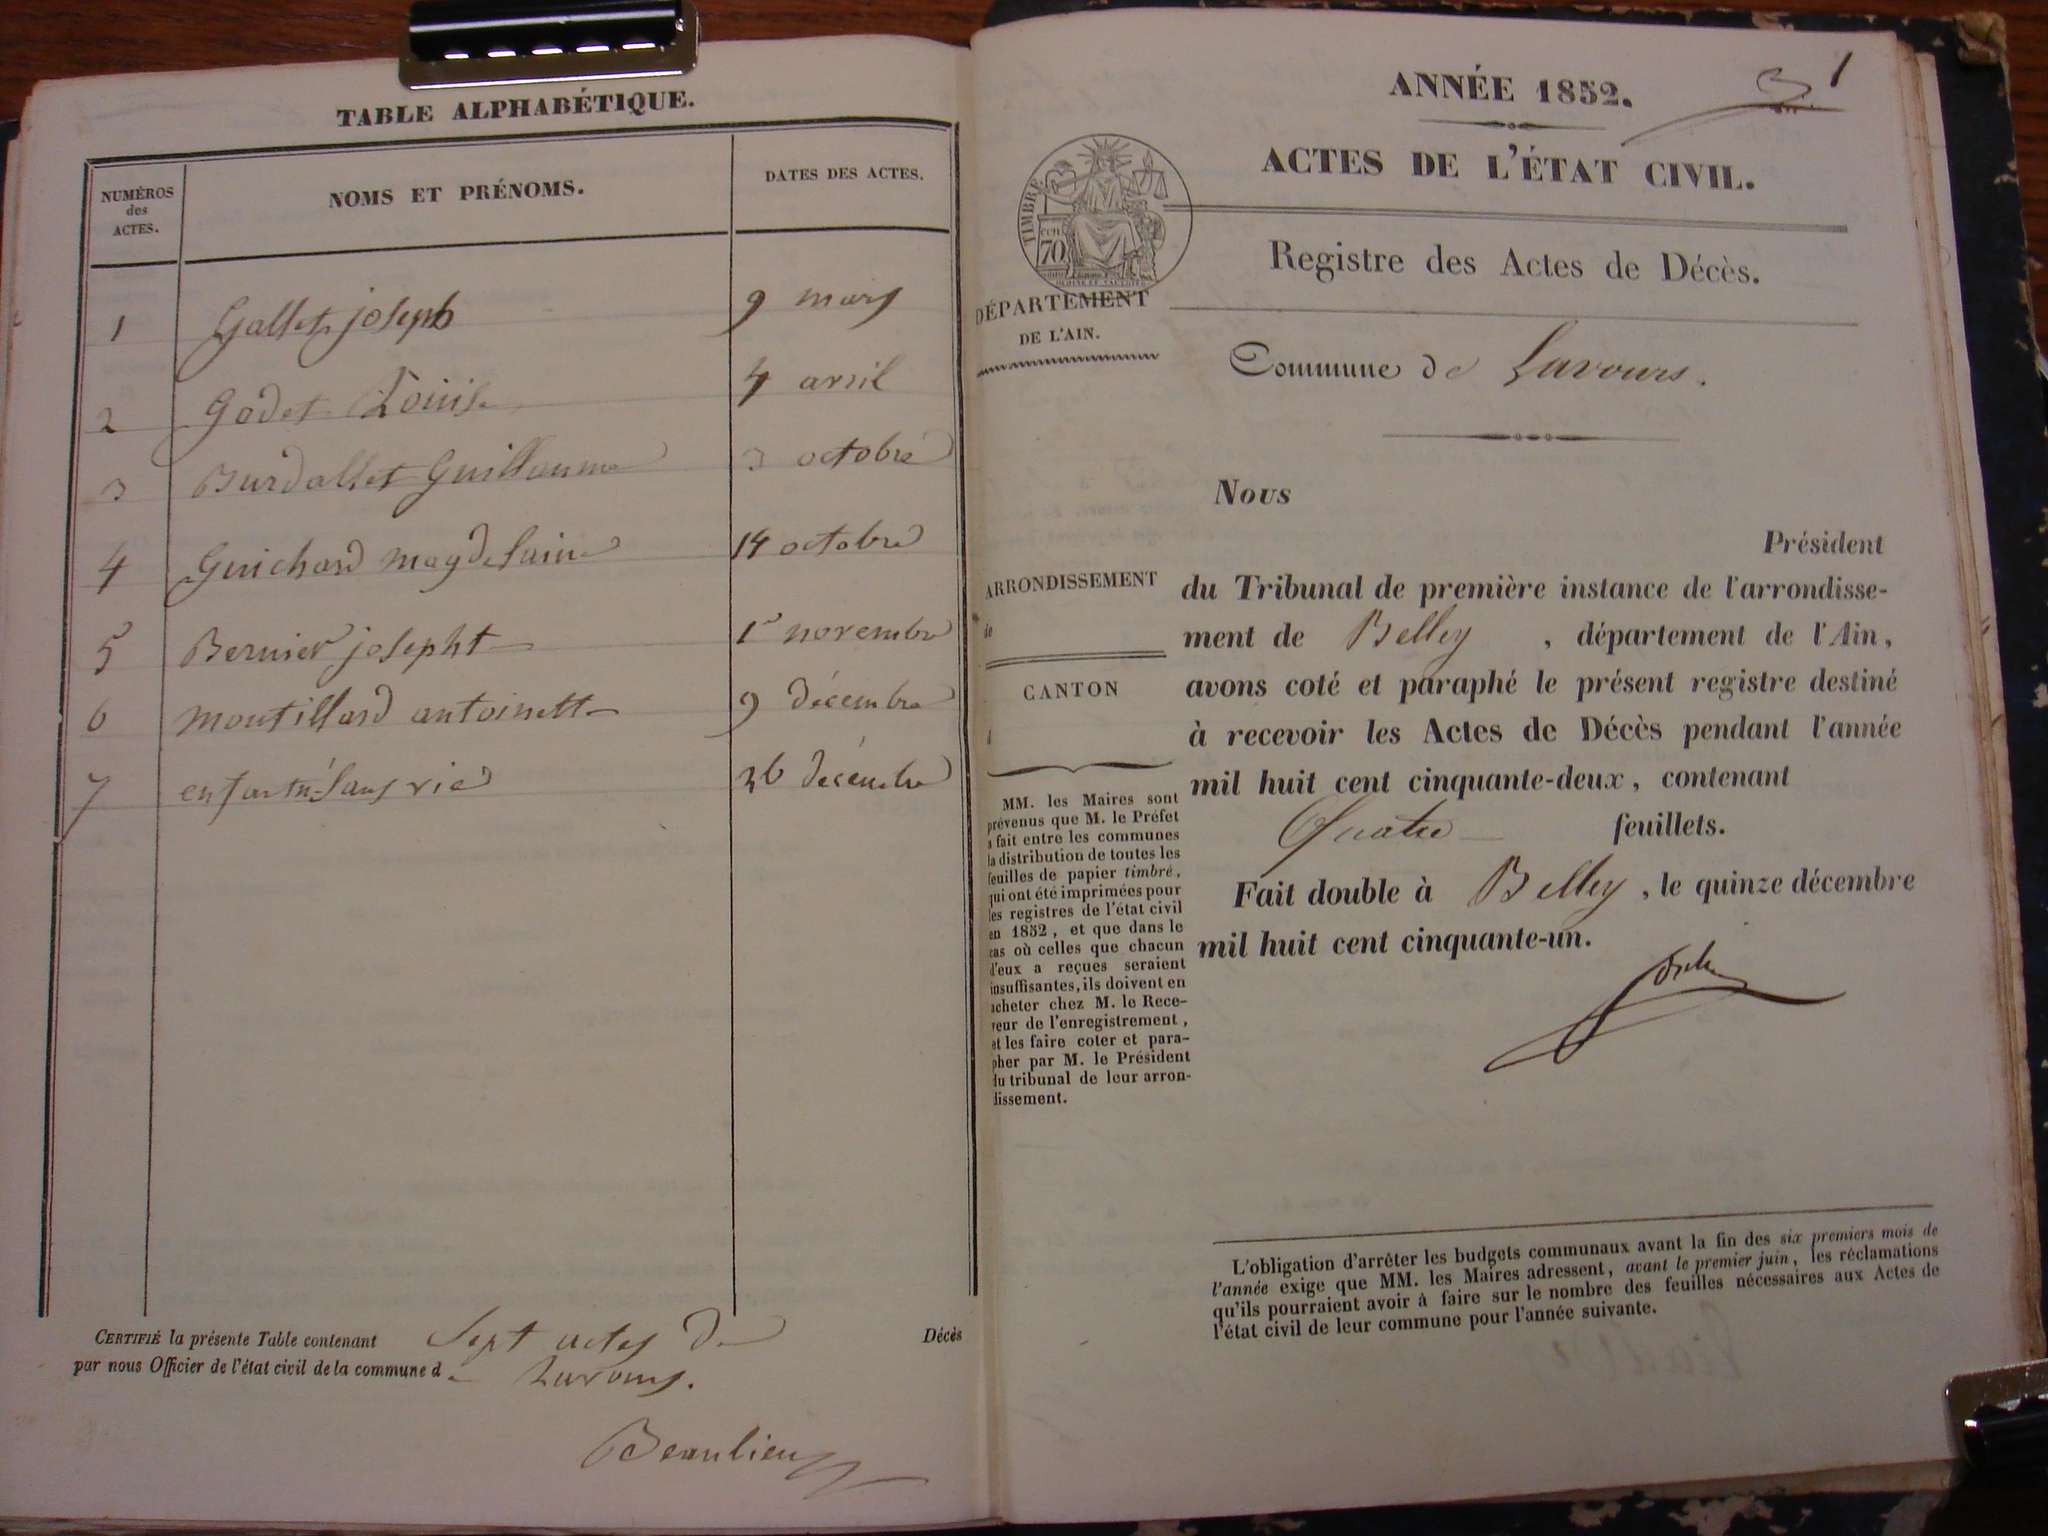 TABLE ALPHABÉTIQUE.
NUMÉROS des ACTES.
NOMS ET PRÉNOMS.
DATES DES ACTES.
1 Gallet joseph 9 mars
2 Godet Louise 4 avril
3 Burdallet Guillaume 3 octobre
4 Guichard magdelaine 14 octobre
5 Bernier josepht 1er novembre
6 Montillard antoinette 9 décembre
7 enfant né sans vie 26 décembre
CERTIFIÉ la présente Table contenant Sept actes de Décès
par nous Officier de l'état civil de la commune de Lavours.
Beaulieu
1
ANNÉE 1852.
ACTES DE L'ÉTAT CIVIL.
TIMBRE
70
Registre des Actes de Décès.
DÉPARTEMENT
DE L'AIN.
Commune de Lavours.
Nous
Président
ARRONDISSEMENT
de
CANTON
d
du Tribunal de première instance de l'arrondisse-
ment de Belley, département de l'Ain,
avons coté et paraphé le présent registre destiné
à recevoir les Actes de Décès pendant l'année
mil huit cent cinquante-deux, contenant
Quatre feuillets.
Fait double à Belley, le quinze décembre
mil huit cent cinquante-un.
MM. les Maires sont
prévenus que M. le Préfet
a fait entre les communes
la distribution de toutes les
feuilles de papier timbré,
qui ont été imprimées pour
les registres de l'état civil
en 1852, et que dans le
cas où celles que chacun
d'eux a reçues seraient
insuffisantes, ils doivent en
acheter chez M. le Rece-
veur de l'enregistrement,
et les faire coter et para-
pher par M. le Président
du tribunal de leur arron-
dissement.
L'obligation d'arrêter les budgets communaux avant la fin des six premiers mois de
l'année exige que MM. les Maires adressent, avant le premier juin, les réclamations
qu'ils pourraient avoir à faire sur le nombre des feuilles nécessaires aux Actes de
l'état civil de leur commune pour l'année suivante.